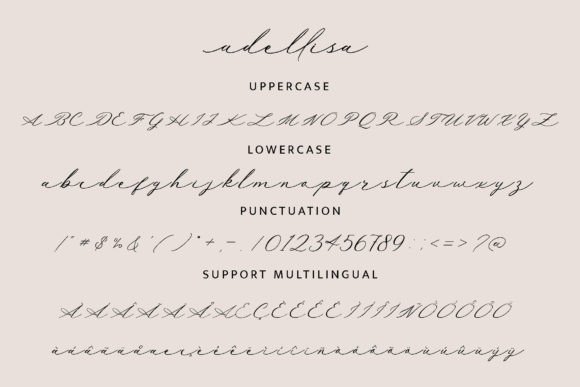 adellisa
UPPERCASE
A B C D E F G H I J K L M N O P Q R S T U V W X Y Z
LOWERCASE
abcdefghijklmnopqrstuvwxyz
PUNCTUATION
! " # $ % & ' ( ) * + , - . / 0123456789 : ; < = > ? @
SUPPORT MULTILINGUAL
À Á Â Ã Ä Å Æ Ç È É Ê Ë Ì Í Î Ï Ñ Ò Ó Ô Õ Ö